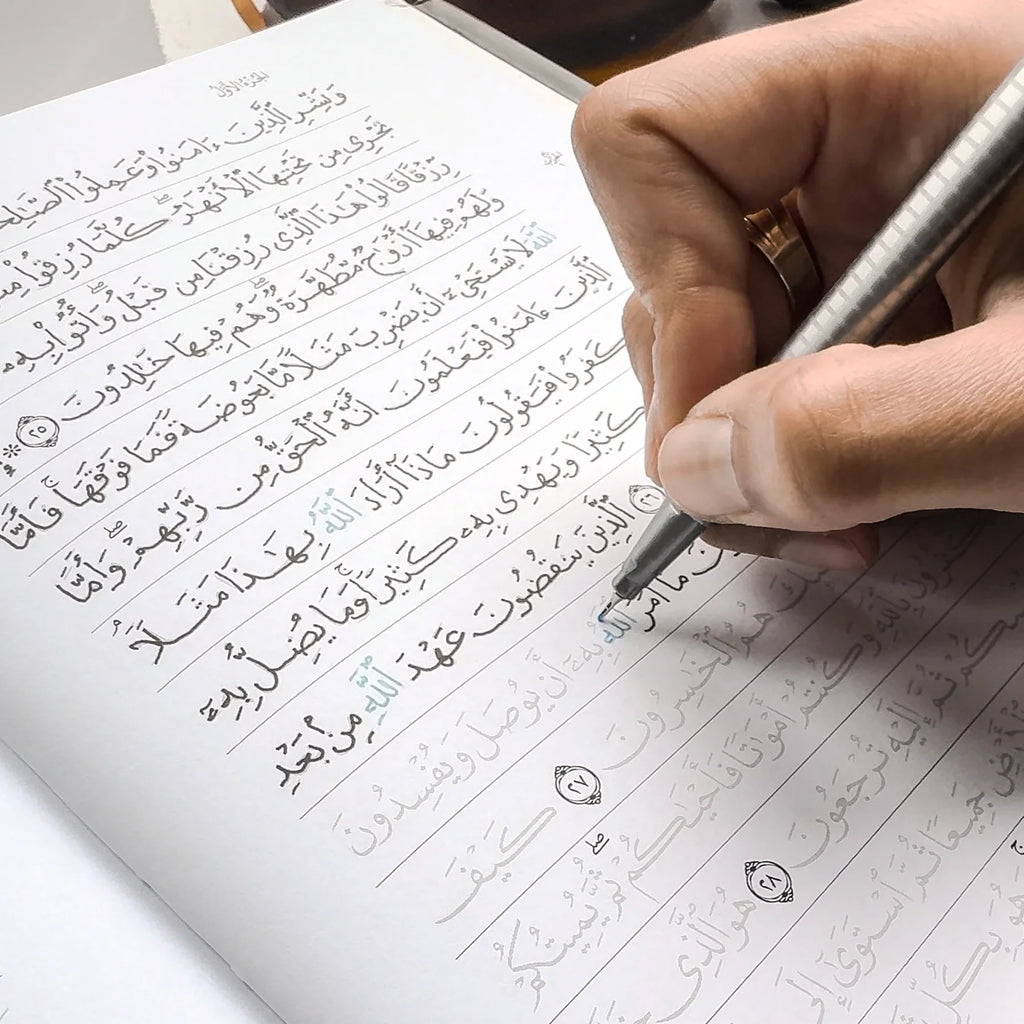 الجزء الأول
وَبَشِّرِ ٱلَّذِينَ ءَامَنُوا۟ وَعَمِلُوا۟
تَجْرِى مِن تَحْتِهَا ٱلْأَنْهَـٰرُ ۖ كُلَّمَا رُزِقُوا۟
رِّزْقًا قَالُوا۟ هَـٰذَا ٱلَّذِى رُزِقْنَا مِن قَبْلُ ۖ وَأُتُوا۟ بِهِۦ
وَلَهُمْ فِيهَآ أَزْوَٰجٌ مُّطَهَّرَةٌ ۖ وَهُمْ فِيهَا خَـٰلِدُونَ ٢٥ ۞
ٱللَّهَ لَا يَسْتَحْىِۦٓ أَن يَضْرِبَ مَثَلًا مَّا بَعُوضَةً فَمَا فَوْقَهَا ۚ فَأَمَّا
ٱلَّذِينَ ءَامَنُوا۟ فَيَعْلَمُونَ أَنَّهُ ٱلْحَقُّ مِن رَّبِّهِمْ ۖ وَأَمَّا
كَفَرُوا۟ فَيَقُولُونَ مَاذَآ أَرَادَ ٱللَّهُ بِهَـٰذَا مَثَلًا ۘ
كَثِيرًا وَيَهْدِى بِهِۦ كَثِيرًا ۚ وَمَا يُضِلُّ بِهِۦٓ
٢٦ ٱلَّذِينَ يَنقُضُونَ عَهْدَ ٱللَّهِ مِنۢ بَعْدِ
مَآ أَمَرَ ٱللَّهُ بِهِۦٓ أَن يُوصَلَ وَيُفْسِدُونَ
هُمُ ٱلْخَـٰسِرُونَ ٢٧ كَيْفَ
بِٱللَّهِ وَكُنتُمْ أَمْوَٰتًا فَأَحْيَـٰكُمْ ۖ ثُمَّ يُمِيتُكُمْ
ثُمَّ إِلَيْهِ تُرْجَعُونَ ٢٨ هُوَ ٱلَّذِى
جَمِيعًا ثُمَّ ٱسْتَوَىٰٓ إِلَى
وَهُوَ بِكُلِّ